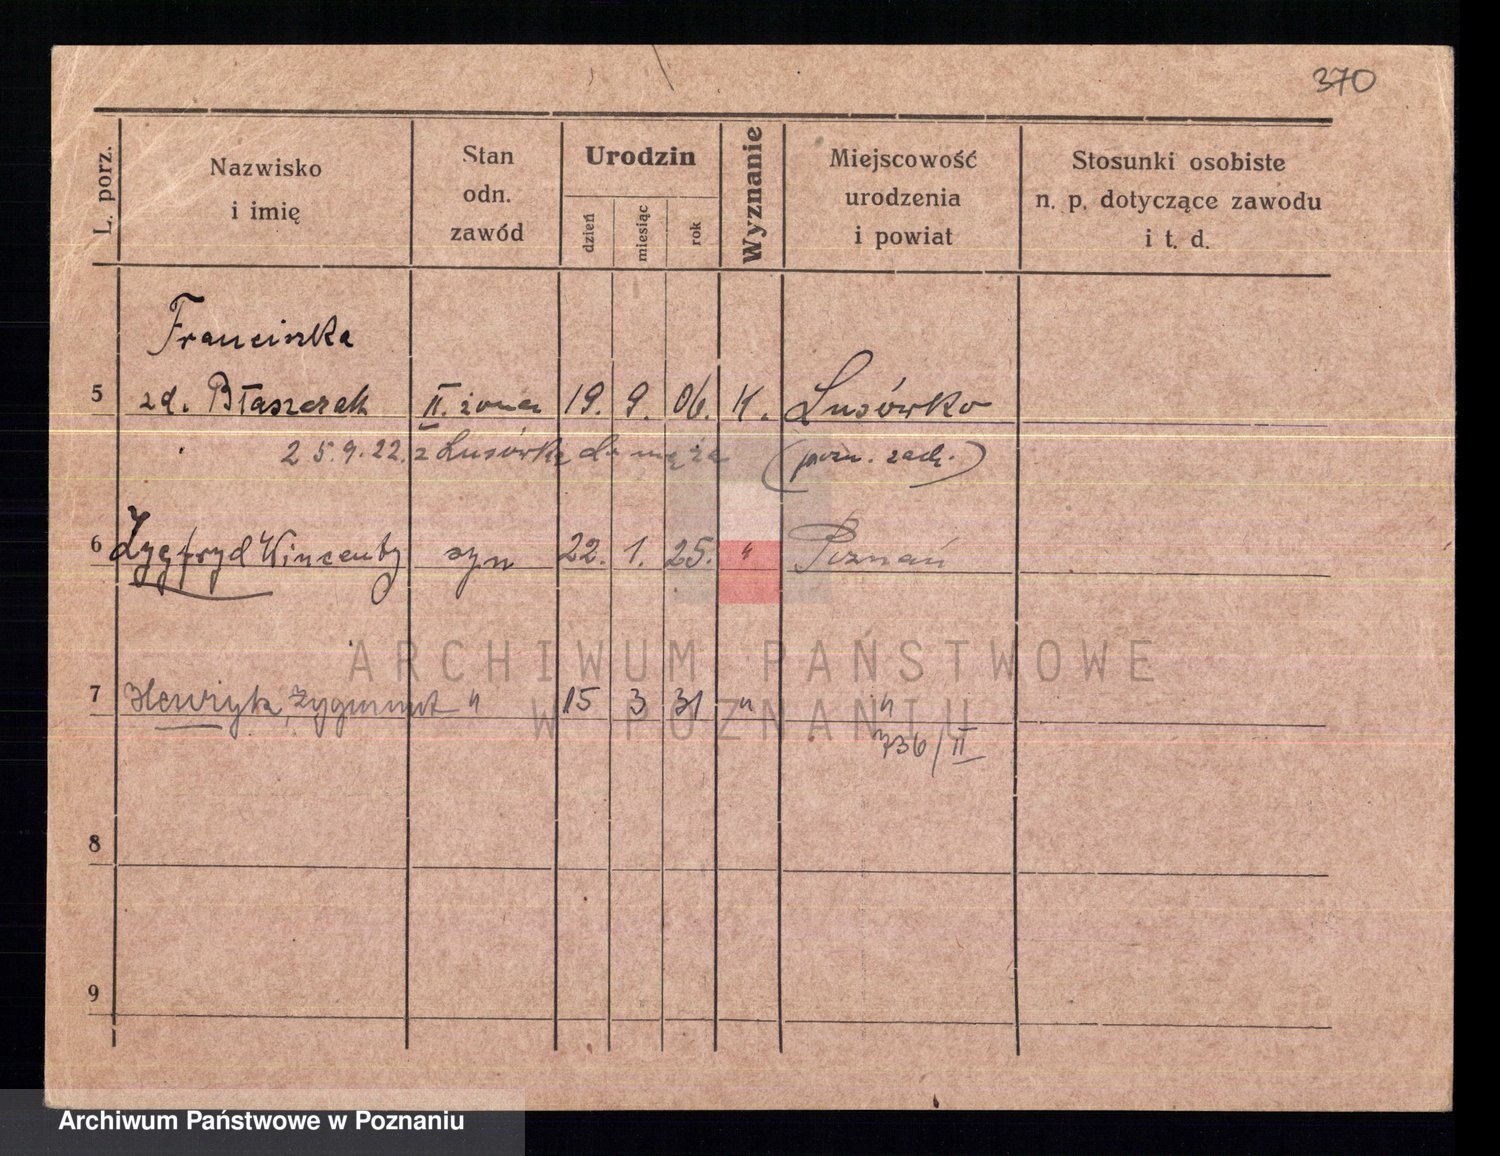 370
L. porz.
Nazwisko
i imię
Stan
odn.
zawód
Urodzin
dzień
miesiąc
rok
Wyznanie
Miejscowość
urodzenia
i powiat
Stosunki osobiste
n. p. dotyczące zawodu
i t. d.
Franciszka
5 zd. Błaszczak II. żona 19. 9. 06. K. Lusówko
25.9.22. z Lusówka do męża (pozn. zach.)
6 Zygfryd Wincenty syn 22. 1. 25. " Poznań
ARCHIWUM PAŃSTWOWE
7 Henryk, Zygmunt " 15 3 31 " "
W POZNANIU
736/II
8
9
Archiwum Państwowe w Poznaniu